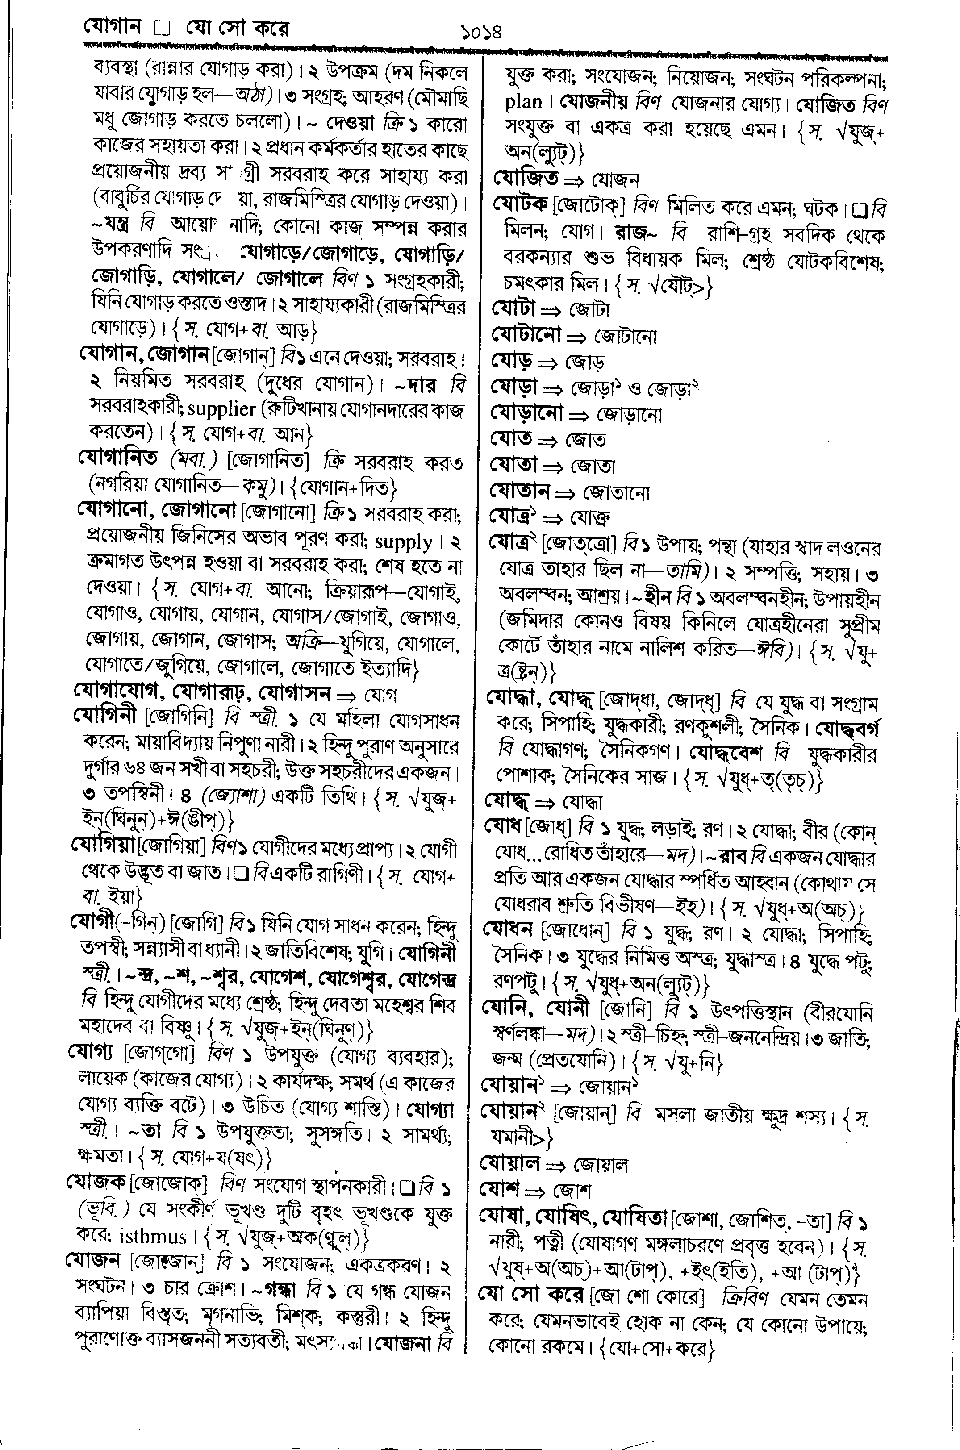 যোগান □ যো সো করে
১০১৪
ব্যবস্থা (রান্নার যোগাড় করা)। ২ উপক্রম (দম নিকলে
যাবার যোগাড় হল—অঠা)। ৩ সংগ্রহ; আহরণ (মৌমাছি
মধু জোগাড় করতে চললো)। ~ দেওয়া ক্রি ১ কারো
কাজের সহায়তা করা। ২ প্রধান কর্মকর্তার হাতের কাছে
প্রয়োজনীয় দ্রব্য সা গ্রী সরবরাহ করে সাহায্য করা
(বাবুর্চির যোগাড় দে য়া, রাজমিস্ত্রির যোগাড় দেওয়া)।
~যন্ত্র বি আয়ো নাদি; কোনো কাজ সম্পন্ন করার
উপকরণাদি সং যোগাড়ে/জোগাড়ে, যোগাড়ি/
জোগাড়ি, যোগালে/ জোগালে বিণ ১ সংগ্রহকারী;
যিনি যোগাড় করতে ওস্তাদ। ২ সাহায্যকারী (রাজমিস্ত্রির
যোগাড়ে)। {স. যোগ+বা. আড়}
যোগান, জোগান [জোগান্] বি১ এনে দেওয়া; সরবরাহ।
২ নিয়মিত সরবরাহ (দুধের যোগান)। ~দার বি
সরবরাহকারী; supplier (রুটিখানায় যোগানদারের কাজ
করতেন)। {স. যোগ+বা. আন}
যোগানিত (মবা.) [জোগানিত] ক্রি সরবরাহ করত
(নগরিয়া যোগানিত—কমু)। {যোগান+দিত}
যোগানো, জোগানো [জোগানো] ক্রি ১ সরবরাহ করা;
প্রয়োজনীয় জিনিসের অভাব পূরণ করা; supply। ২
ক্রমাগত উৎপন্ন হওয়া বা সরবরাহ করা; শেষ হতে না
দেওয়া। {স. যোগ+বা. আনো; ক্রিয়ারূপ—যোগাই,
যোগাও, যোগায়, যোগান, যোগাস/জোগাই, জোগাও,
জোগায়, জোগান, জোগাস; অক্রি—যুগিয়ে, যোগালে,
যোগাতে/জুগিয়ে, জোগালে, জোগাতে ইত্যাদি}
যোগাযোগ, যোগারূঢ়, যোগাসন ⇒ যোগ
যোগিনী [জোগিনি] বি স্ত্রী. ১ যে মহিলা যোগসাধন
করেন; মায়াবিদ্যায় নিপুণা নারী। ২ হিন্দু পুরাণ অনুসারে
দুর্গার ৬৪ জন সখী বা সহচরী; উক্ত সহচরীদের একজন।
৩ তপস্বিনী। ৪ (জ্যোশা) একটি তিথি। {স. √যুজ্+
ইন্(ঘিনুন্)+ঈ(ঙীপ্)}
যোগিয়া [জোগিয়া] বিণ১ যোগীদের মধ্যে প্রাপ্য। ২ যোগী
থেকে উদ্ভূত বা জাত। □ বি একটি রাগিণী। {স. যোগ+
বা. ইয়া}
যোগী (-গিন্) [জোগি] বি১ যিনি যোগ সাধন করেন; হিন্দু
তপস্বী; সন্ন্যাসী বা ধ্যানী। ২ জাতিবিশেষ; যুগি। যোগিনী
স্ত্রী। ~ন্দ্র, ~শ, ~শ্বর, যোগেশ, যোগেশ্বর, যোগেন্দ্র
বি হিন্দু যোগীদের মধ্যে শ্রেষ্ঠ; হিন্দু দেবতা মহেশ্বর শিব
মহাদেব বা বিষ্ণু। {স. √যুজ্+ইন্(ঘিনুণ্)}
যোগ্য [জোগ্‌গো] বিণ ১ উপযুক্ত (যোগ্য ব্যবহার);
লায়েক (কাজের যোগ্য)। ২ কার্যদক্ষ; সমর্থ (এ কাজের
যোগ্য ব্যক্তি বটে)। ৩ উচিত (যোগ্য শাস্তি)। যোগ্যা
স্ত্রী.। ~তা বি ১ উপযুক্ততা; সুসঙ্গতি। ২ সামর্থ্য;
ক্ষমতা। {স. যোগ+য(যৎ)}
যোজক [জোজোক্] বিণ সংযোগ স্থাপনকারী। □ বি ১
(ভূবি.) যে সংকীর্ণ ভূখণ্ড দুটি বৃহৎ ভূখণ্ডকে যুক্ত
করে; isthmus। {স. √যুজ্+অক(ণ্বুল্)}
যোজন [জোজন্] বি ১ সংযোজন; একত্রকরণ। ২
সংঘটন। ৩ চার ক্রোশ। ~গন্ধা বি ১ যে গন্ধ যোজন
ব্যাপিয়া বিস্তৃত; মৃগনাভি; মিশ্‌ক; কস্তুরী। ২ হিন্দু
পুরাণোক্ত ব্যাসজননী সত্যবতী; যোজনা বি
যুক্ত করা; সংযোজন; নিয়োজন; সংঘটন পরিকল্পনা;
plan। যোজনীয় বিণ যোজনার যোগ্য। যোজিত বিণ
সংযুক্ত বা একত্র করা হয়েছে এমন। {স. √যুজ্+
অন(ল্যুট)}
যোজিত ⇒ যোজন
যোটক [জোটোক্] বিণ মিলিত করে এমন; ঘটক। □ বি
মিলন; যোগ। রাজ~ বি রাশি-গ্রহ সবদিক থেকে
বরকন্যার শুভ বিধায়ক মিল; শ্রেষ্ঠ যোটকবিশেষ;
চমৎকার মিল। {স. √যৌট্>}
যোটা ⇒ জোটা
যোটানো ⇒ জোটানো
যোড় ⇒ জোড়
যোড়া ⇒ জোড়া¹ ও জোড়া²
যোড়ানো ⇒ জোড়ানো
যোত ⇒ জোত
যোতা ⇒ জোতা
যোতান ⇒ জোতানো
যোত্র¹ ⇒ যোক্ত্র
যোত্র² [জোত্‌ত্রো] বি ১ উপায়; পন্থা (যাহার স্বাদ লওনের
যোত্র তাহার ছিল না—তামি)। ২ সম্পত্তি; সহায়। ৩
অবলম্বন; আশ্রয়। ~হীন বি ১ অবলম্বনহীন; উপায়হীন
(জমিদার কোনও বিষয় কিনিলে যোত্রহীনেরা সুপ্রীম
কোর্টে তাঁহার নামে নালিশ করিত—ঈবি)। {স. √যু+
ত্র(ষ্ট্রন্)}
যোদ্ধা, যোদ্ধৃ [জোদ্‌ধা, জোদ্‌ধৃ] বি যে যুদ্ধ বা সংগ্রাম
করে; সিপাহি; যুদ্ধকারী; রণকুশলী; সৈনিক। যোদ্ধবর্গ
বি যোদ্ধাগণ; সৈনিকগণ। যোদ্ধবেশ বি যুদ্ধকারীর
পোশাক; সৈনিকের সাজ। {স. √যুধ্+তৃ(তৃচ্)}
যোদ্ধৃ ⇒ যোদ্ধা
যোধ [জোধ্] বি ১ যুদ্ধ; লড়াই; রণ। ২ যোদ্ধা; বীর (কোন্
যোধ...রোধিত তাঁহারে—মদ)। ~রাব বি একজন যোদ্ধার
প্রতি আর একজন যোদ্ধার স্পর্ধিত আহ্বান (কোথায় সে
যোধরাব শ্রুতি বিভীষণ—ইহ)। {স. √যুধ্+অ(অচ্)}
যোধন [জোধোন্] বি ১ যুদ্ধ; রণ। ২ যোদ্ধা; সিপাহি;
সৈনিক। ৩ যুদ্ধের নিমিত্ত অস্ত্র; যুদ্ধাস্ত্র। ৪ যুদ্ধে পটু;
রণপটু। {স. √যুধ্+অন(ল্যুট)}
যোনি, যোনী [জোনি] বি ১ উৎপত্তিস্থান (বীরযোনি
স্বর্ণলঙ্কা—মদ)। ২ স্ত্রী-চিহ্ন; স্ত্রী-জননেন্দ্রিয়। ৩ জাতি;
জন্ম (প্রেতযোনি)। {স. √যু+নি}
যোয়ান¹ ⇒ জোয়ান¹
যোয়ান² [জোয়ান] বি মসলা জাতীয় ক্ষুদ্র শস্য। {স.
যমানী>}
যোয়াল ⇒ জোয়াল
যোশ ⇒ জোশ
যোষা, যোষিৎ, যোষিতা [জোশা, জোশিত, -তা] বি ১
নারী; পত্নী (যোষাগণ মঙ্গলাচরণে প্রবৃত্ত হবেন)। {স.
√যুষ্+অ(অচ)+আ(টাপ্), +ইৎ(ইতি), +আ (টাপ্)}
যো সো করে [জো শো কোরে] ক্রিবিণ যেমন তেমন
করে; যেমনভাবেই হোক না কেন; যে কোনো উপায়ে;
কোনো রকমে। {যো+সো+করে}